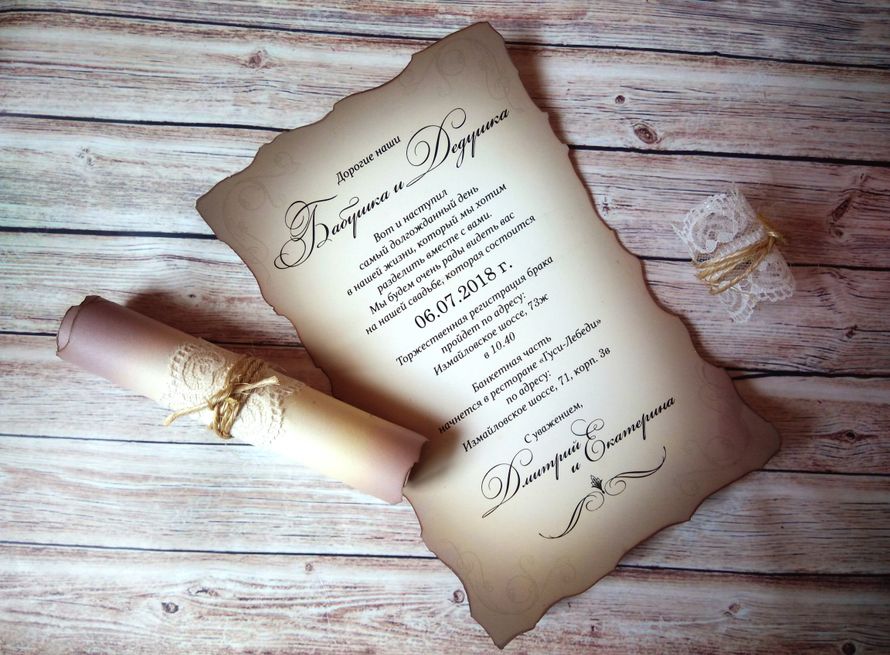 Дорогие наши
Бабушка и Дедушка
Вот и наступил
самый долгожданный день
в нашей жизни, который мы хотим
разделить вместе с вами.
Мы будем очень рады видеть вас
на нашей свадьбе, которая состоится
06.07.2018 г.
Торжественная регистрация брака
пройдет по адресу:
Измайловское шоссе, 73ж
в 10.40
Банкетная часть
начнется в ресторане «Гуси-Лебеди»
по адресу:
Измайловское шоссе, 71, корп. 3в
С уважением,
Дмитрий
и Екатерина